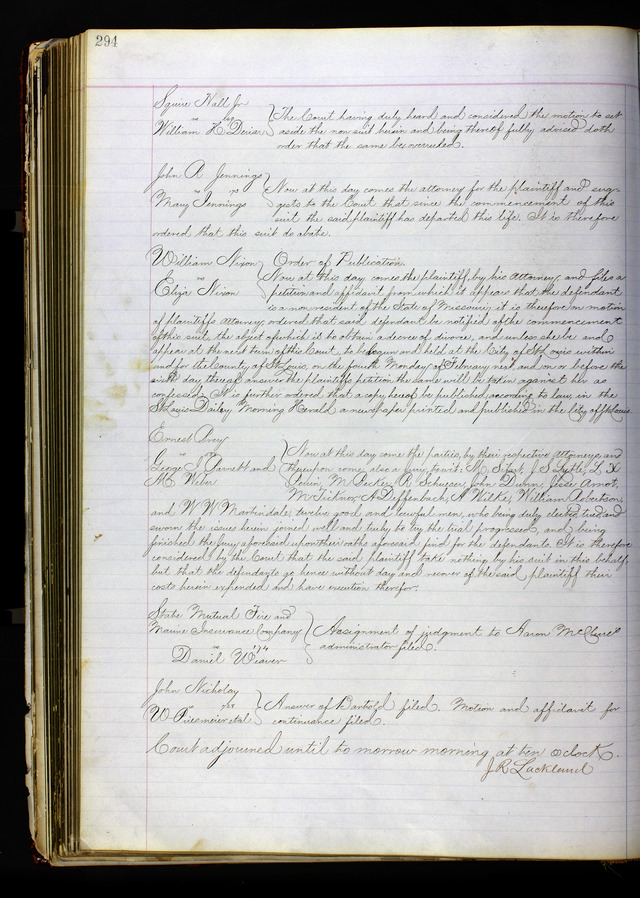 294
Squire Nall Jr
vs
William K Devier } The Court having duly heard and considered the motion to set
aside the non suit herein and being thereof fully advised doth
order that the same be overruled.
John A Jennings
vs
Mary Jennings } Now at this day comes the attorney for the plaintiff and sug-
gests to the Court that since the commencement of this
suit the said plaintiff has departed this life. It is therefore
ordered that this suit do abate.
William Nixon } Order of Publication.
vs
Eliza Nixon } Now at this day comes the plaintiff, by his Attorney, and files a
petition and affidavit from which it appears that the defendant
is a non resident of the State of Missouri; it is therefore on motion
of plaintiffs attorney, ordered that said defendant be notified of the commencement
of this suit, the object of which is to obtain a decree of divorce, and unless she be and
appear at the next term of this Court, to be begun and held at the City of St Louis within
and for the County of St Louis, on the fourth Monday of February next and on or before the
sixth day thereof answer the plaintiffs petition the same will be taken against her as
confessed. It is further ordered that a copy hereof be published according to law, in the
St Louis Dailey Morning Herald a newspaper printed and published in the City of St Louis
Ernest
vs
George and
M. } Now at this day come the parties, by their respective Attorneys, and
thereupon comes also a jury, to wit: M. J S Lytle, L
M. Decker, R. John Dunn, Jesse Arnot,
McTichnor, A Deffenbach, N Wilks, William Robertson,
and W W Martindale, twelve good and lawful men, who being duly elected tried and
sworn the issues herein joined well and truly to try the trial progressed, and being
finished the jury aforesaid upon their oaths aforesaid find for the defendants. It is therefore
considered by the Court that the said plaintiff take nothing by his suit in this behalf,
but that the defendants go hence without day and recover of the said plaintiff their
costs herein expended and have execution therefor.
State Mutual Fire and
Marine Insurance Company
vs
Daniel Weaver } Assignment of judgment to Aaron McClure's
administrator filed.
John Nicholay
vs
W et al } Answer of Bartold filed. Motion and affidavit for
continuance filed.
Court adjourned until to morrow morning at ten o clock.
J. R. Lackland